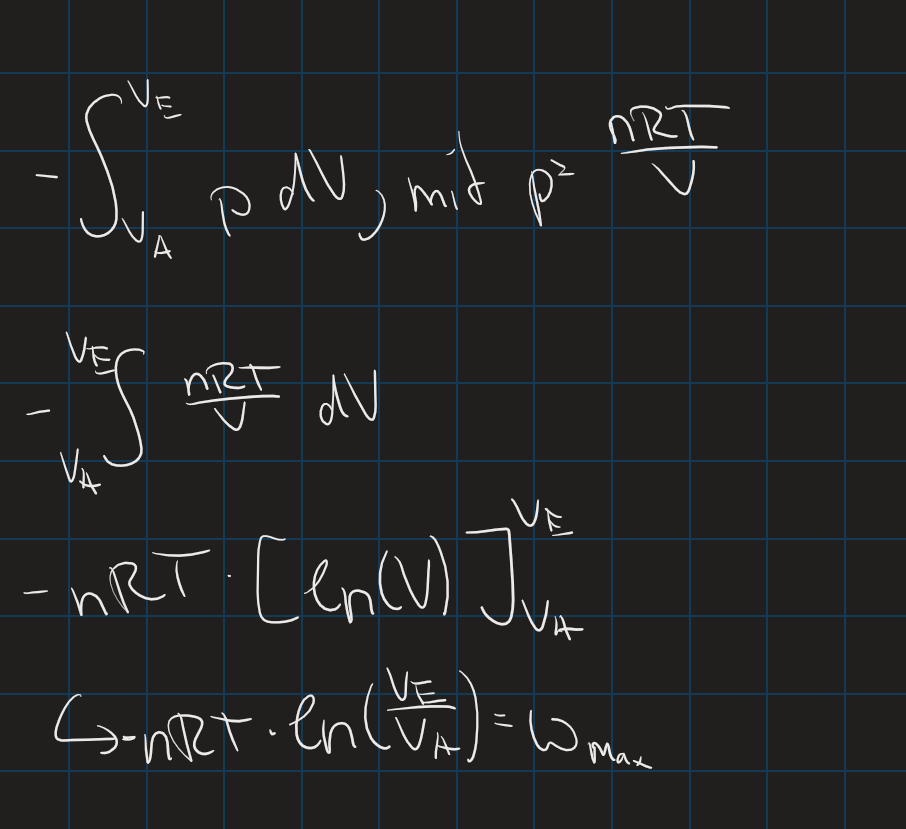 -∫_{V_A}^{V_E} p dV, mit p = \frac{nRT}{V}
-∫_{V_A}^{V_E} \frac{nRT}{V} dV
-nRT · [ln(V)]_{V_A}^{V_E}
↪ -nRT · ln(\frac{V_E}{V_A}) = ω_{Max}